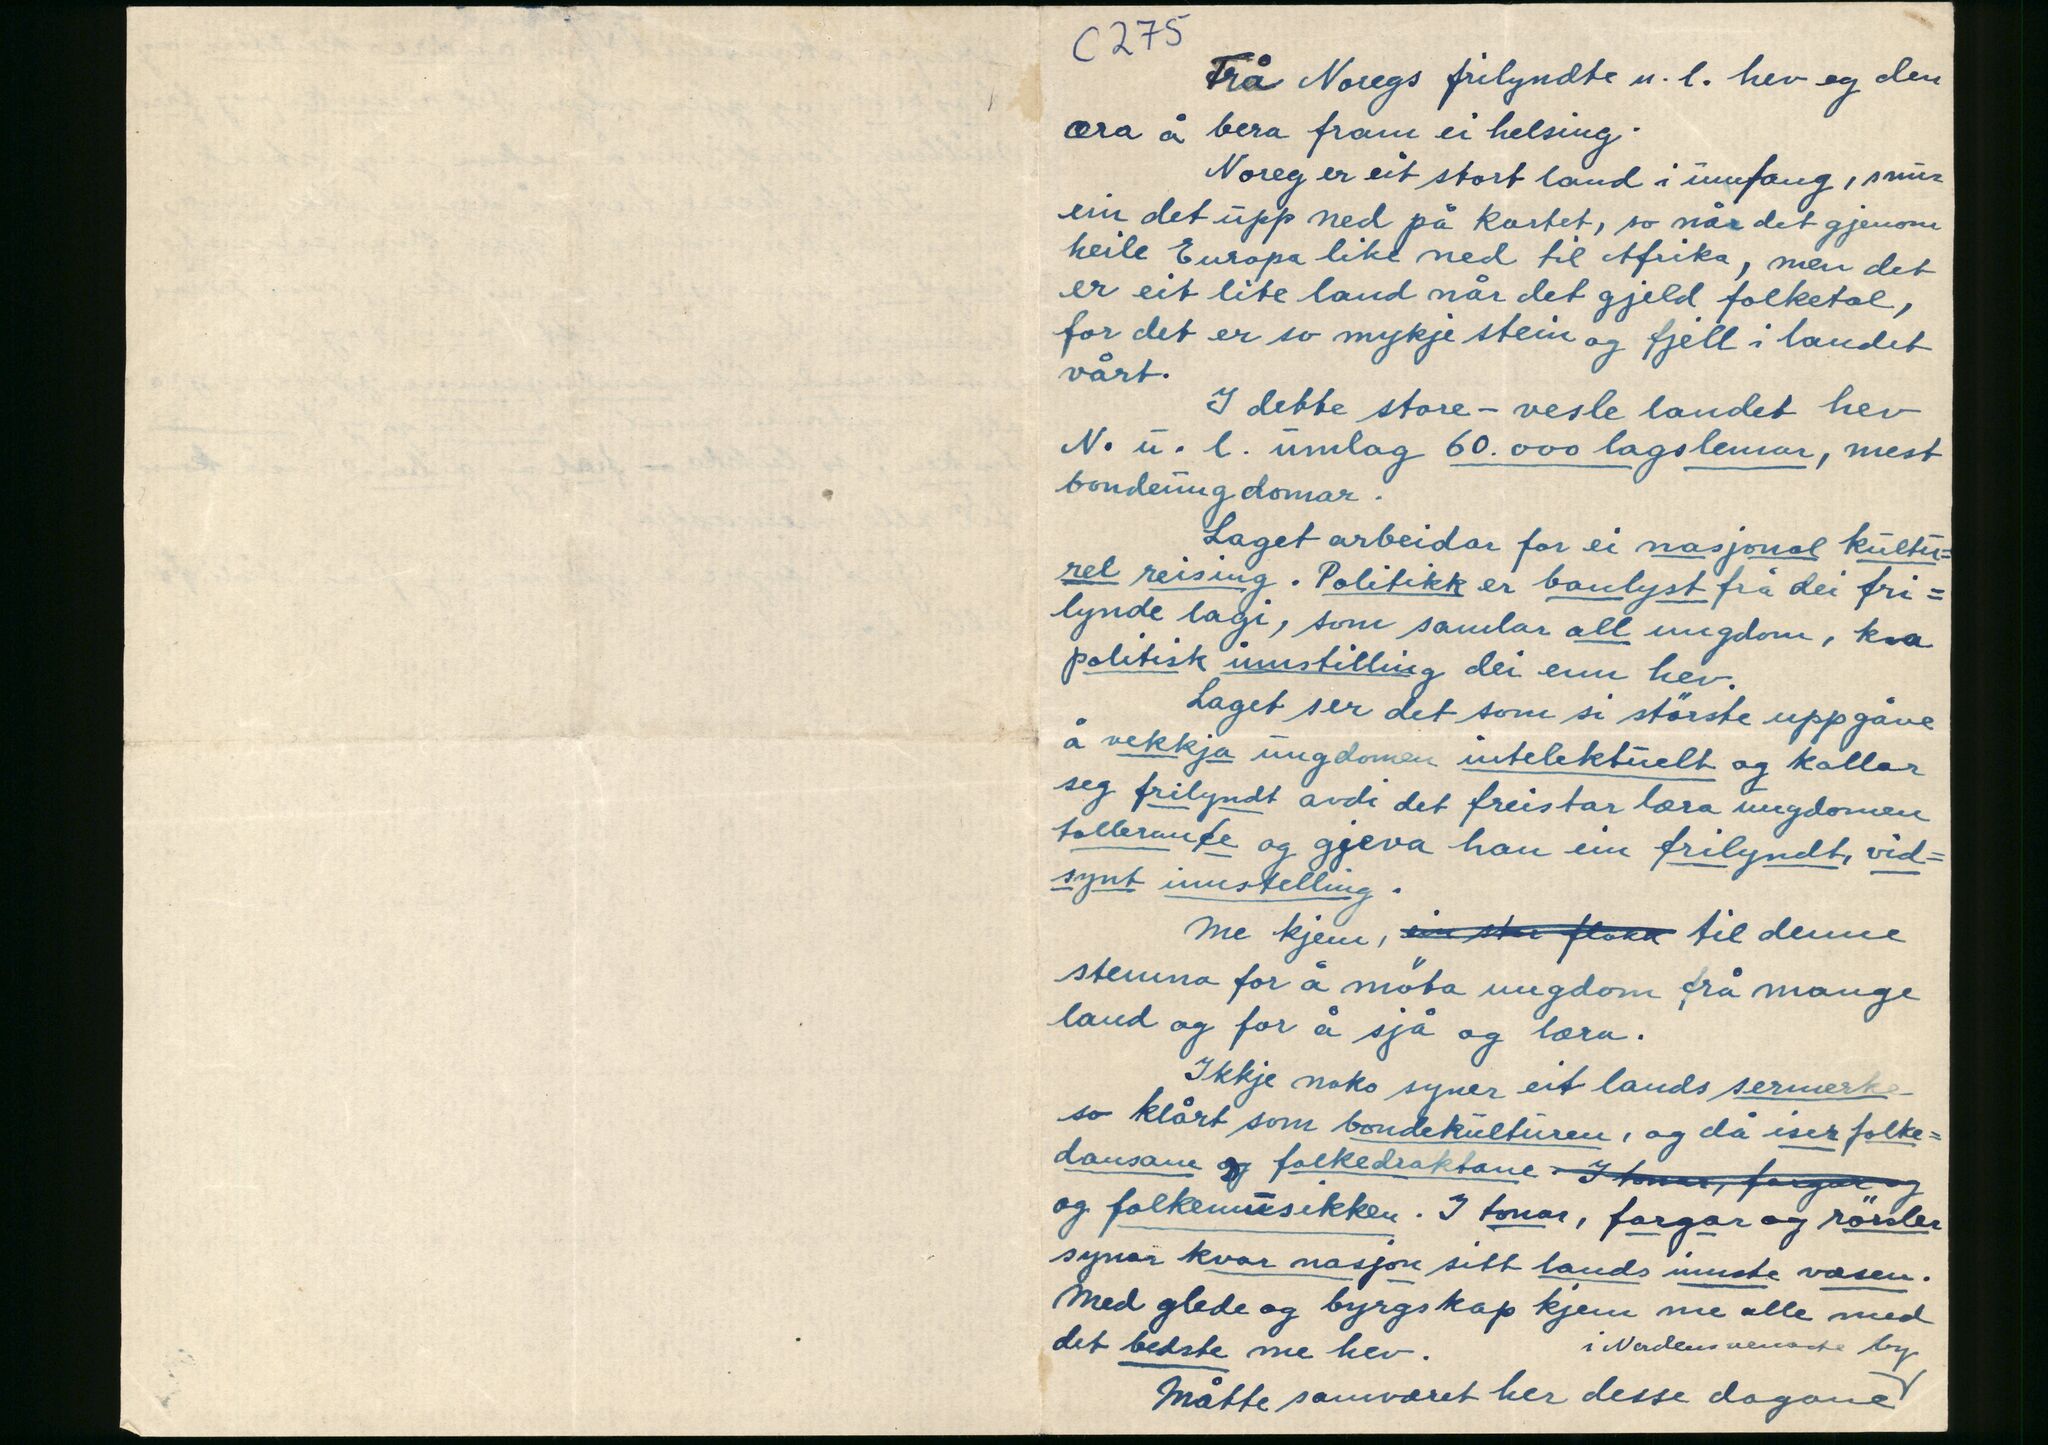 C 275
Frå Noregs frilyndte u. l. hev eg den
æra å bera fram ei helsing.
Noreg er eit stort land i umfang, snur
ein det upp ned på kartet, so når det gjenom
heile Europa like ned til Afrika, men det
er eit lite land når det gjeld folketal,
for det er so mykje stein og fjell i landet
vårt.
I dette store - vesle landet hev
N. u. l. umlag 60.000 lagslemar, mest
bondeungdomar.
Laget arbeidar for ei nasjonal kultu=
rel reising. Politikk er banlyst frå dei fri=
lynde lagi, som samlar all ungdom, kva
politisk innstilling dei enn hev.
Laget ser det som si störste uppgåve
å vekkja ungdomen intelektuelt og kallar
seg frilyndt avdi det freistar læra ungdomen
tolleranse og gjeva han ein frilyndt, vid=
synt innstelling.
Me kjem, ein stor flokk til denne
stemna for å möta ungdom frå mange
land og for å sjå og læra.
Ikkje noko syner eit lands sermerke
so klårt som bondekulturen, og då iser folke=
dansane og folkedraktane. I tonar, fargar og
og folkemusikken. I tonar, fargar og rörsler
synar kvar nasjon sitt lands innste væsen.
Med glede og byrgskap kjem me alle med
det bedste me hev.
i Nordens venaste by
Måtte samværet her desse dagane